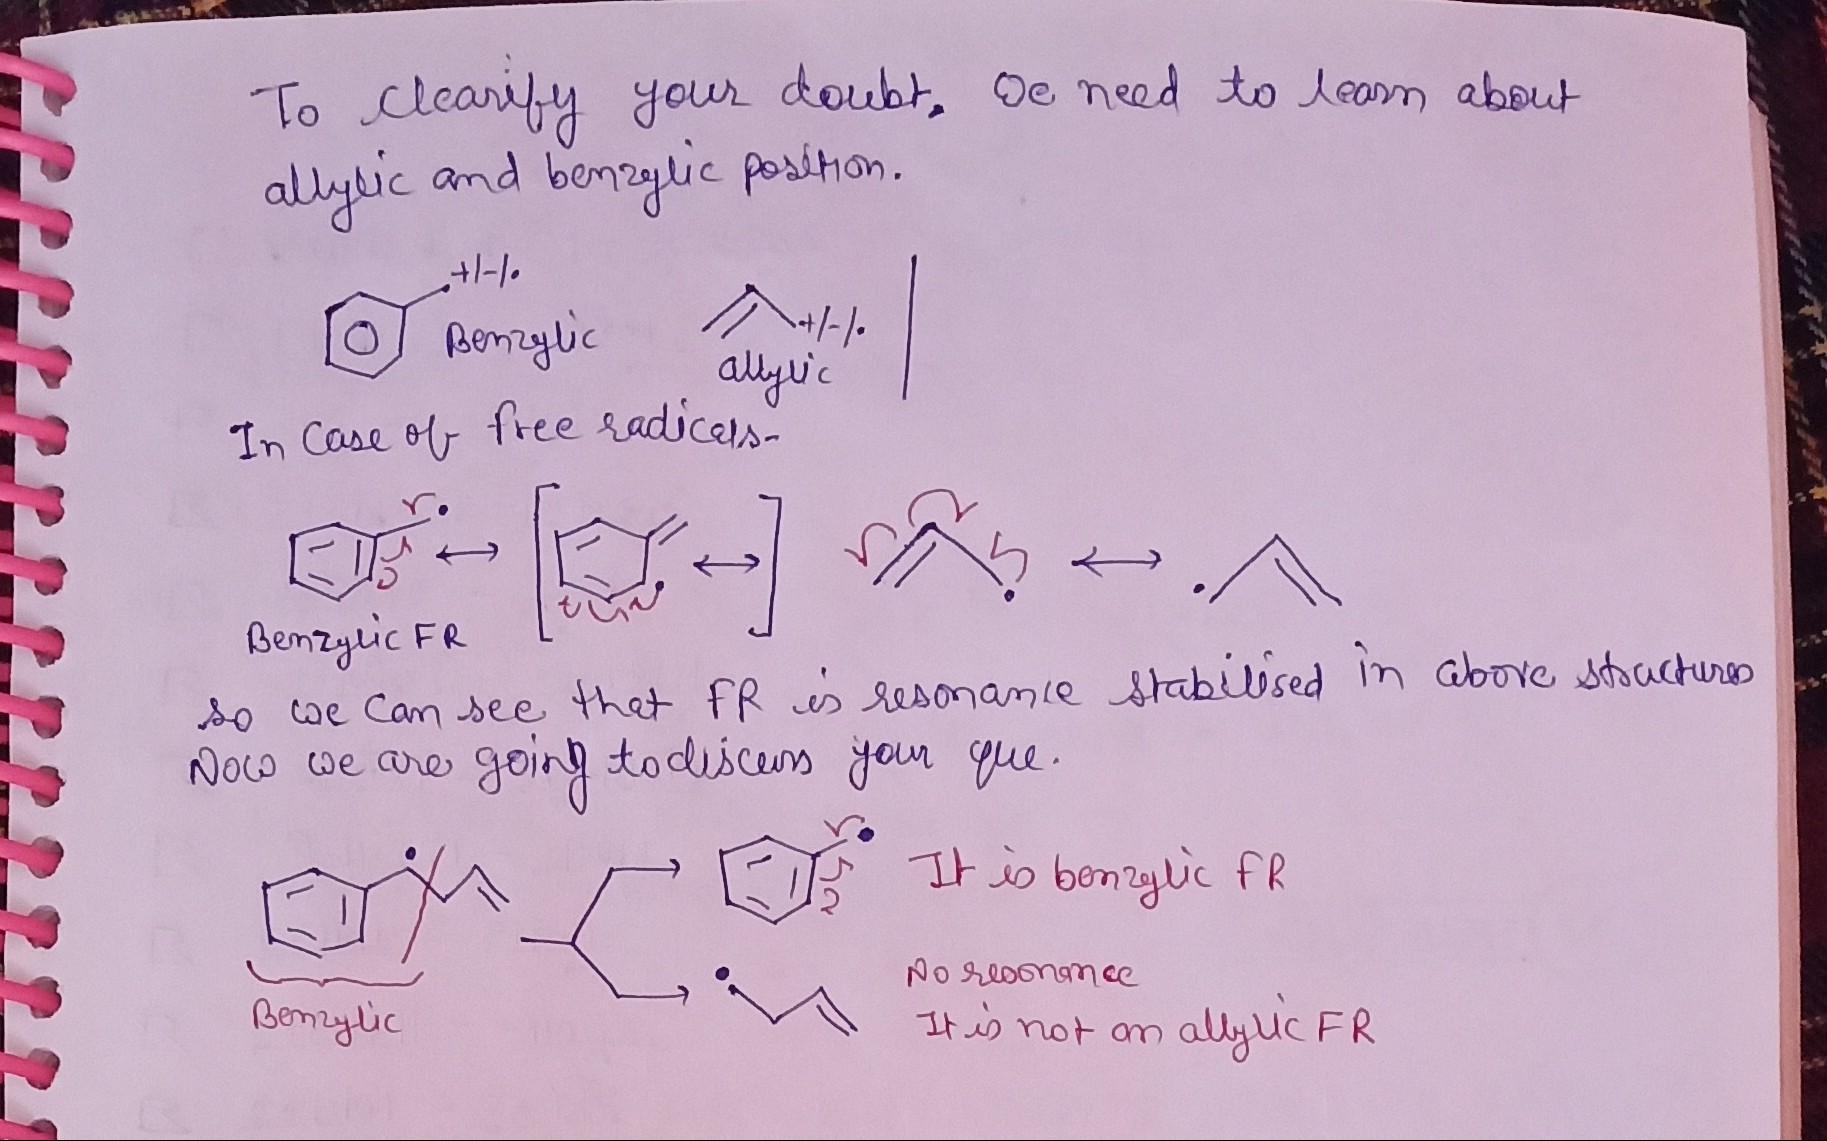 To clearify your doubt, We need to learn about
allylic and benzylic position.
+/-/•
Benzylic
+/-/•
allylic
In Case of free radicals-
Benzylic FR
so we can see that FR is resonance stabilised in above structures
Now we are going to discuss your que.
It is benzylic FR
Benzylic
No resonance
It is not an allylic FR